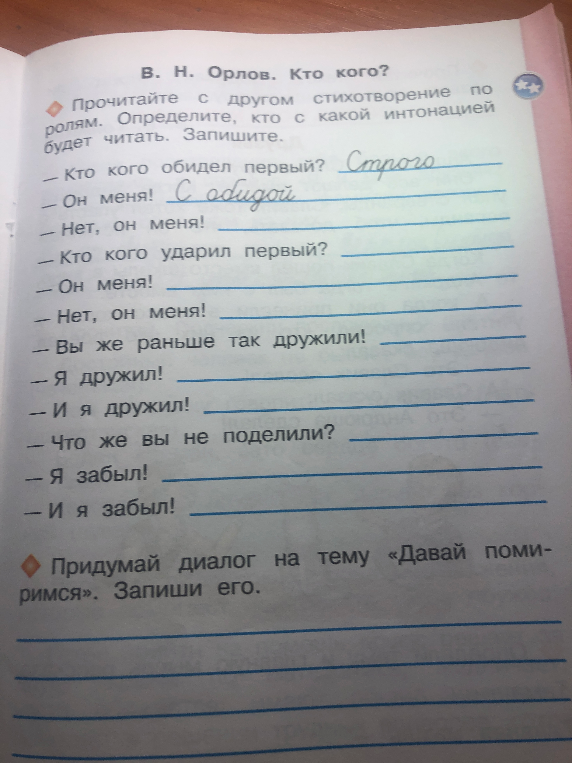 В. Н. Орлов. Кто кого?
Прочитайте с другом стихотворение по
ролям. Определите, кто с какой интонацией
будет читать. Запишите.
— Кто кого обидел первый? Строго
— Он меня! С обидой
— Нет, он меня!
— Кто кого ударил первый?
— Он меня!
— Нет, он меня!
— Вы же раньше так дружили!
— Я дружил!
— И я дружил!
— Что же вы не поделили?
— Я забыл!
— И я забыл!
Придумай диалог на тему «Давай поми-
римся». Запиши его.